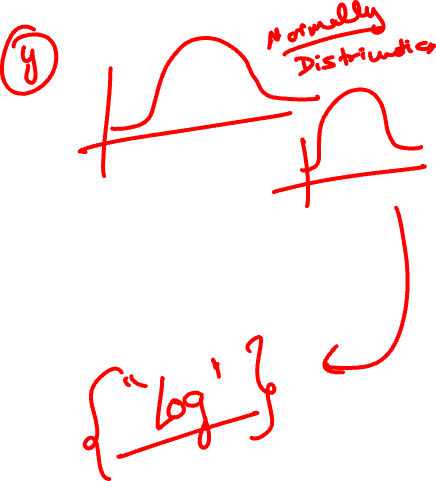 y
Normally
Distriundion
{"Log"}